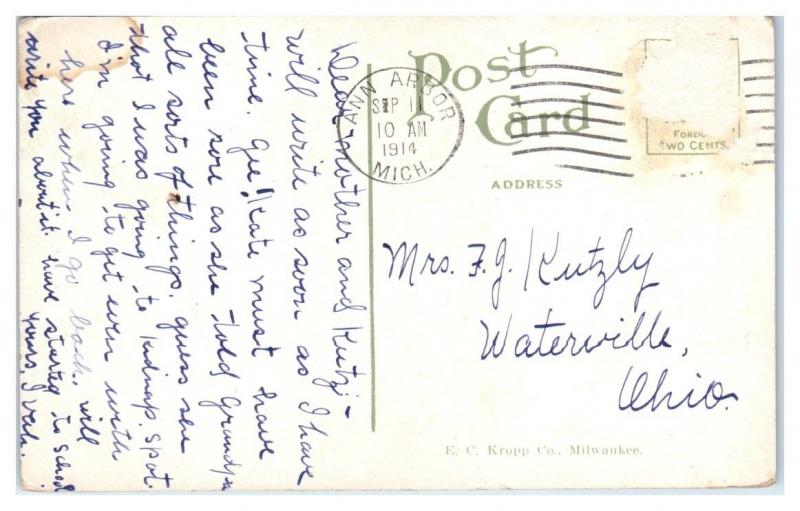 Post
Card
ANN ARBOR
SEP 11
10 AM
1914
MICH.
FOREIGN
TWO CENTS
ADDRESS
Mrs. F. J. Kutzly
Waterville,
Ohio.
E. C. Kropp Co., Milwaukee.
Dear mother and Kutzj -
will write as soon as I have
time. Gee! Kate must have
been sore as she told grandpa
all sorts of things. guess sen
that I was going to kidnap Spot.
I'm going to get even with
her when I go back. will
write you about it. have started to School
Yours, Veh.